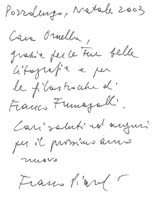 Pozzolengo, Natale 2003
Cara Ornella,
grazie per le tue belle
litografie e per
le filastrocche di
Franco Fumagalli.
Cari saluti ed auguri
per il prossimo anno
nuovo
Franco